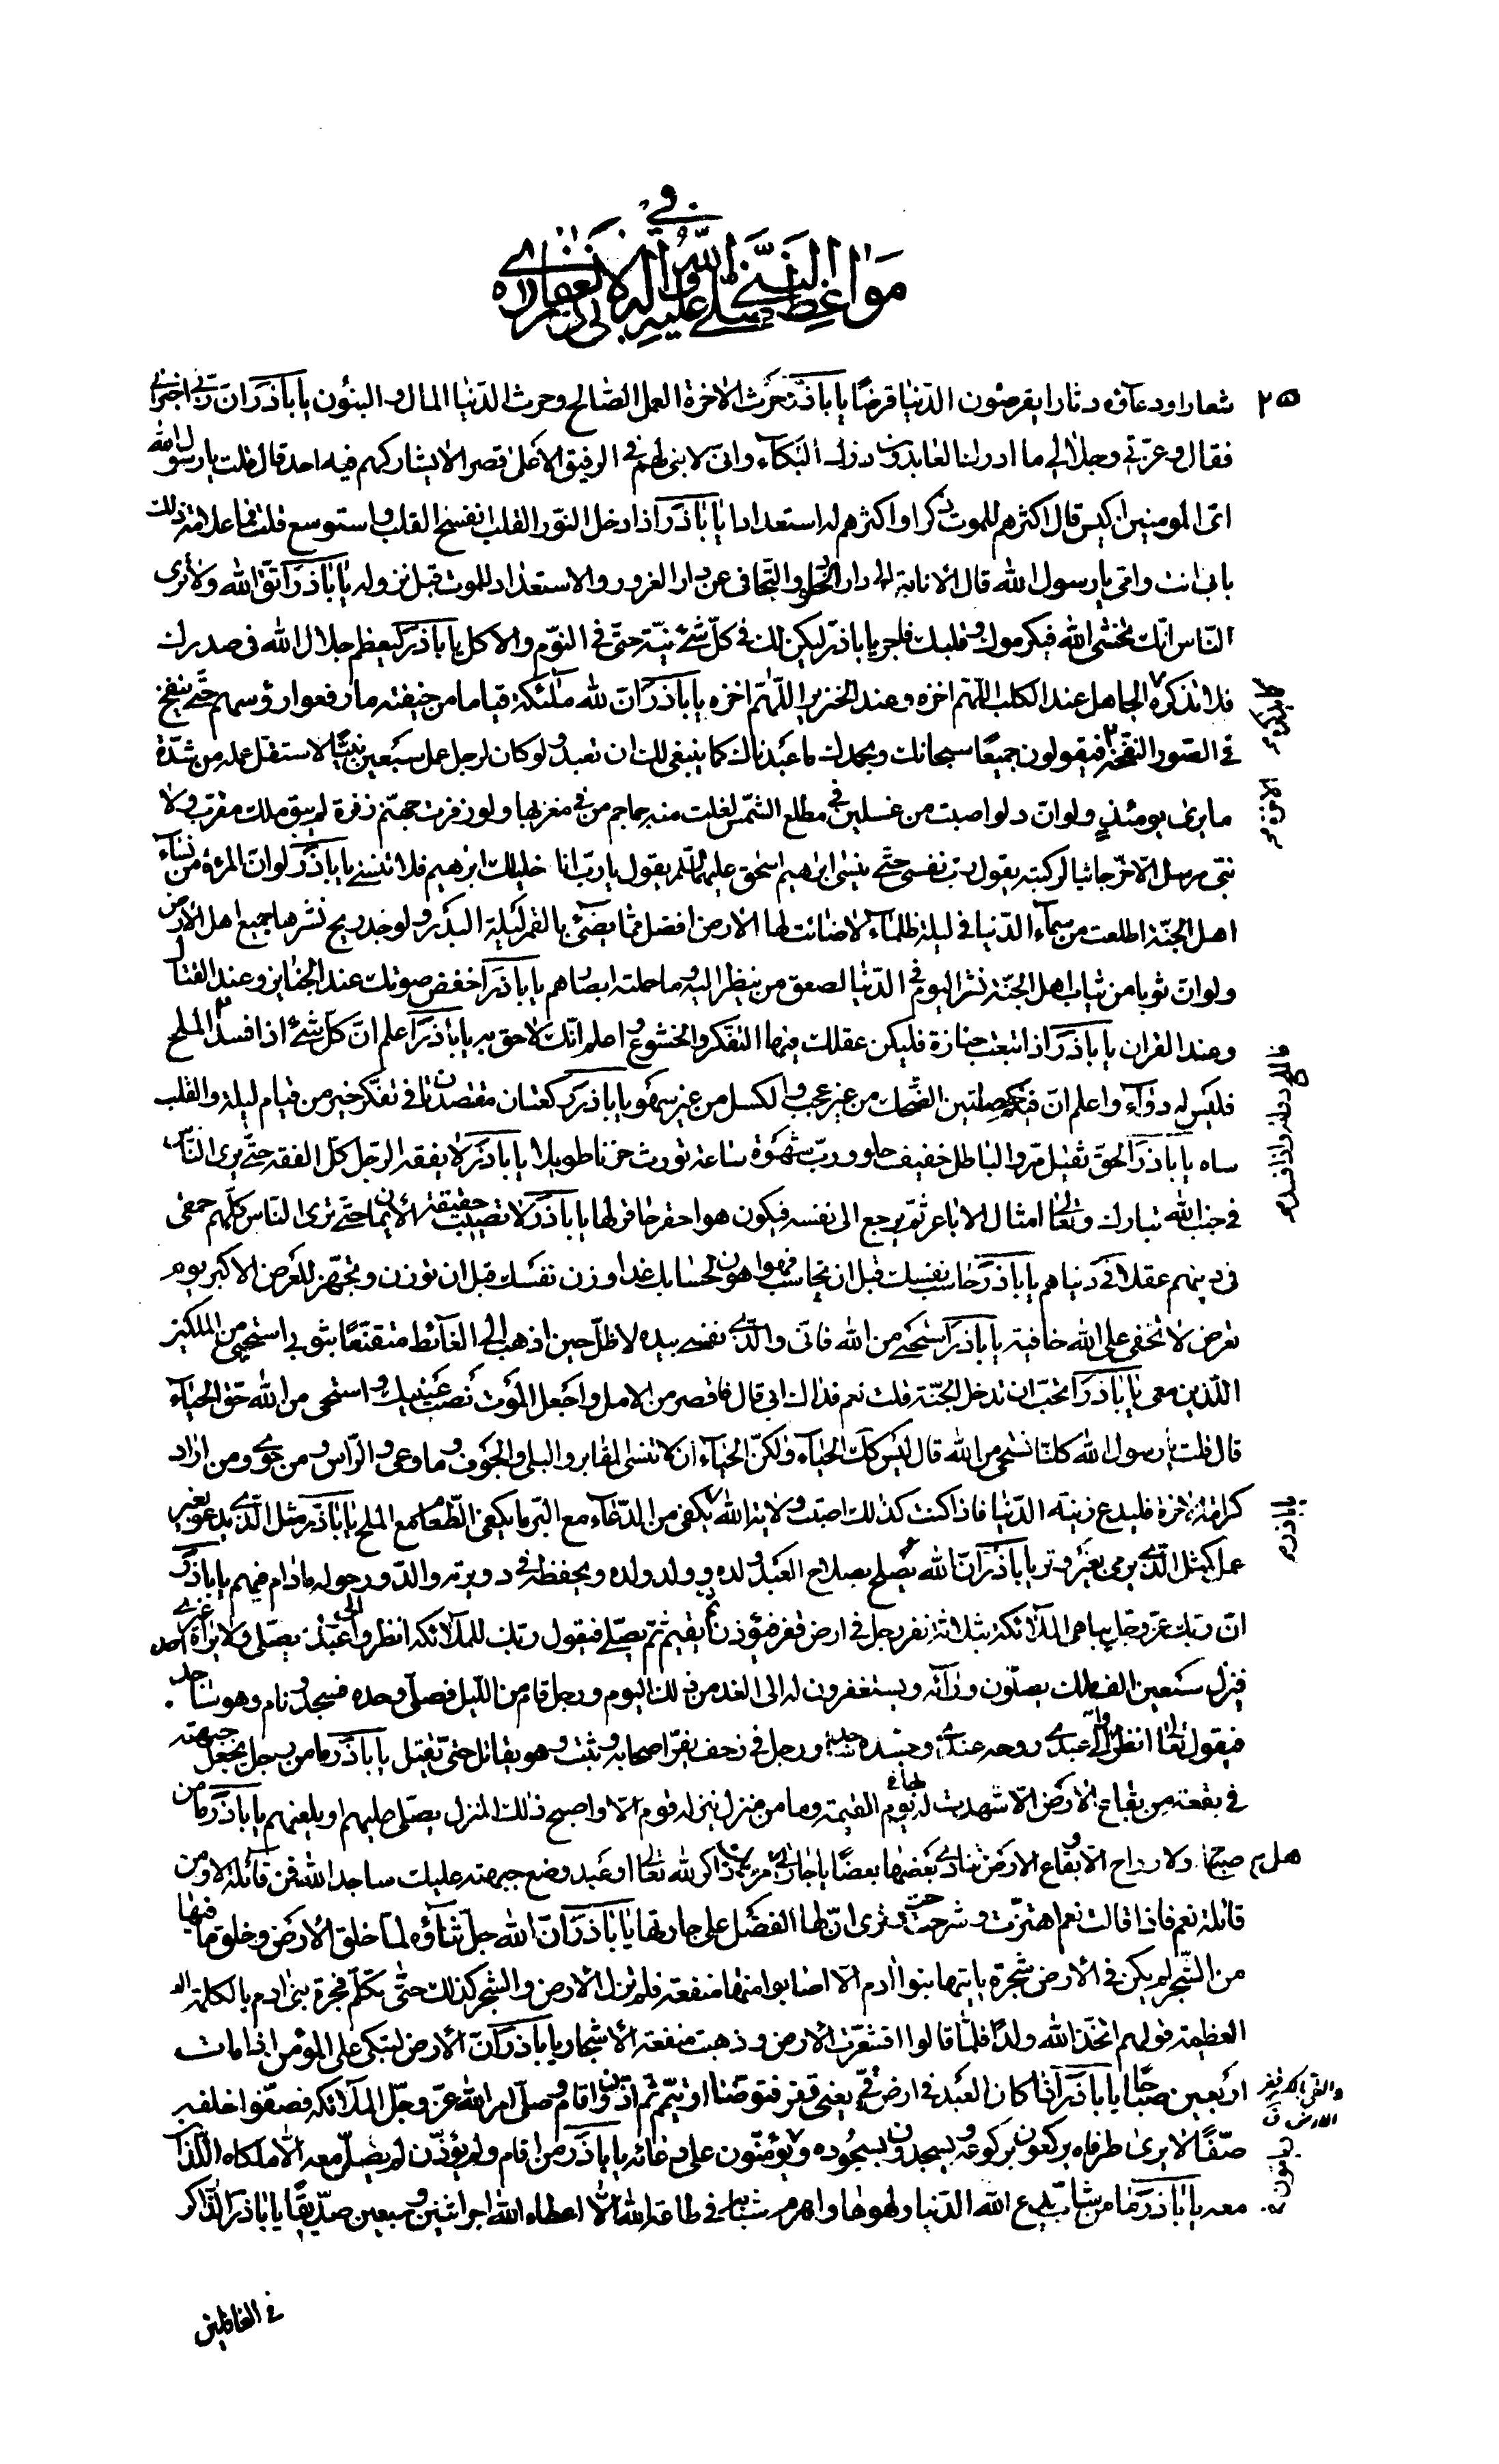 في
مواعظ النبي صلى الله عليه واله لابي ذر الغفاري ره
٢٥
شعارا ودعآؤه دثارا يقرضون الدّنيا قرضًا يا باذرّ حَرث الاخرة العمل الصّالح وحرث الدّنيا المال والبنُون يا باذَر انّ ربّي اخبرني
فقال وعزّتي وجلالي ما ادرك العابدون درك البكآء وانّي لابني لهم في الرفيق الاعلىٰ قصر الايشاركهم فيه احد قال قلت يا رسول الله
ائّ المومنين اكيس قال اكثرهم للموت ذكرا واكثرهم له استعدادا يا باذَر اذا دخل النّور القلب انفسخ القلب واستوسع قلت فما علامة ذلك
بابي انت وامّي يا رسول الله قال الانابة الى دار الخلود والتّجافى عن دار الغرور والاستعداد للموت قبل نزوله يا باذَر اتّق الله ولا تُرى
النّاس انّك تخشى الله فيكرموك وقلبك فاجر يا باذرّ ليكن لك في كلّ شئ نيّة حتّى في النّوم والاكل يا باذَر ليعظم جلال الله فى صدرك
فلا تذكره الجاهل عند الكلب اللّهمّ اخزه وعند الخنزير اللّهمّ اخزه يا باذَر انّ لله ملٰئكة قياما من خيفته ما رفعوا رؤسهم حتّى ينفخ
في الصّور النّفخة فيقولون جميعًا سبحانك وبحمدك ما عبدناك كما ينبغي لك ان تعبد ولو كان لرجل عمل سبعين نبيًّا لاستقلّ عمله من شدّة
ما يرى يومئذٍ ولو انّ دلوا صبت من غسلين في مطلع الشّمس لغلت منه جماجم من في مغربها ولو زفرت جهنّم زفرة لم يبق ملك مقرّب ولا
نبيّ مرسل الّا خرّ جاثيا لركبته يقول ربّ نفسي حتّى ينسى ابرٰهيم اسحٰق عليهما السّلم يقول يا ربّ انا خليلك ابرٰهيم فلا تنسني يا باذَر لو انّ المرءة من نساء
اهل الجنّة اطلعت من سمآء الدّنيا في ليلة ظلماء لاضائت لها الارض افضل ممّا يضئ بالقمر ليلة البدر ولوجد ريح نشرها جميع اهل الارض
ولو انّ ثوبا من ثياب اهل الجنّة نشر اليوم في الدّنيا لصعق من ينظر اليه وما حملته ابصارهم يا باذَر اخفض صوتك عند الجنايز وعند القتال
وعند القران يا باذَر اذا اتبعت جنازة فليكن عقلك فيها التفكّر والخشوع واعلم انّك لاحق به يا باذَر اعلم انّ كلّ شئ اذا فسد الملح
فليس له دوآء واعلم انّ فيكم خصلتين الضّحك من غير عجب والكسل من غير سهو يا باذَر ركعتان مقتصدتان في تفكّر خير من قيام ليلة والقلب
ساه يا باذَر الحقّ ثقيل مرّ والباطل خفيف حلو وربّ شهوة ساعة تورث حزنا طويلا يا باذَر لا يفقه الرّجل كلّ الفقه حتّى يرى النّاس
في جنب الله تبارك وتعالى امثال الاباعر ثمّ يرجع الى نفسه فيكون هو احقر حاقر لها يا باذَر لا تصيب حقيقة الايمان حتّى ترى النّاس كلّهم حمقى
في دينهم عقلا في دنياهم يا باذَر حاسب نفسك قبل ان تحاسب فهو اهون لحسابك غدا وزن نفسك قبل ان توزن وتجهّز للعرض الاكبر يوم
تعرض لا تخفى على الله خافية يا باذَر استحي من الله فانّي والّذي نفسي بيده لاظلّ حين اذهب الى الغآئط متقنّعًا بثوبي استحيي من الملكين
اللّذين معى يا باذَر اتحبّ ان تدخل الجنّة قلت نعم فداك ابي قال فاقصر من الامل واجعل الموت نصب عينيك واستحى من الله حقّ الحياء
قال قلت يا رسول الله كلّنا نستحى من الله قال ليس كذلك الحياء ولكنّ الحياء ان لا تنسى المقابر والبلى والجوف وما وعى والرّاس ومن حوى ومن اراد
كرامة الاخرة فليدع زينة الدّنيا فاذا كنت كذلك اصبت ولاية الله يكفى من الدّعاء مع البرّ ما يكفى الطّعام مع الملح يا باذَر مثل الّذي يدعو بغير
عمل كمثل الّذي يرمى بغير وتر يا باذَر انّ الله يصلح بصلاح العبد ولده وولد ولده ويحفظه في دويرته والدّور حوله ما دام فيهم يا باذَر
انّ ربّك عزّ وجلّ يباهى الملائكة بثلاثة نفر رجل في ارض قفر فيؤذن ثمّ يقيم ثمّ يصلّي فيقول ربّك للملائكة انظروا الى عبدي يصلّى ولا يراه احد غيري
فينزل سبعين الف ملك يصلّون ورآئه ويستغفرون له الى الغد من ذلك اليوم ورجل قام من اللّيل فصلّى وحده فسجد ونام وهو ساجد
فيقول تعالى انظروا الى عبدي روحه عندي وجسده ساجد ورجل في زحف يفرّ اصحابه وثبت وهو يقاتل حتّى يقتل يا باذَر ما من رجل يجعل جبهته
في بقعة من بقاع الارض الّا شهدت له بها يوم القيمة وما من منزل ينزله قوم الّا واصبح ذلك المنزل يصلّى عليهم او يلعنهم يا باذَر ما من
صباح ولا رواح الّا وبقاع الارض تنادي بعضها بعضًا يا جارة هل مرّ بك ذاكر لله تعالى او عبد وضع جبهته عليك ساجدا لله فمن قآئلة لا ومن
قائلة نعم فاذا قالت نعم اهتزّت وشرحت وترى انّ لها الفضل على جارتها يا باذَر انّ الله جلّ ثناؤه لمّا خلق الارض وخلق ما فيها
من الشّجر لم يكن في الارض شجرة ياتيها بنوا ادم الّا اصابوا منها منفعة فلم تزل الارض والشجر كذلك حتّى تكلّم فجرة بنى ادم بالكلمة
العظيمة قولهم اتّخذ الله ولدًا فلمّا قالوا اقشعرّت الارض وذهبت منفعة الاشجار يا باذَر انّ الارض لتبكى على المؤمن اذا مات
اربعين صباحًا يا باذَر اذا كان العبد في ارض قيّ يعنى قفر فتوضّا او تيمّم ثمّ اذّن واقام وصلّى امر الله عزّ وجلّ الملآئكة فصفّوا خلفه
صفًّا لا يرىٰ طرفاه يركعون بركوعه ويسجدون بسجوده ويؤمّنون على دعائه يا باذَر من اقام ولم يؤذّن لم يصلّ معه الّا ملكاه اللّذان
معه يا باذَر ما من شابّ يدع الله الدّنيا ولهوها واهرم شبابه في طاعة الله الّا اعطاه الله اجر اثنين وسبعين صدّيقًا يا باذَر الذّاكر
في الغافلين